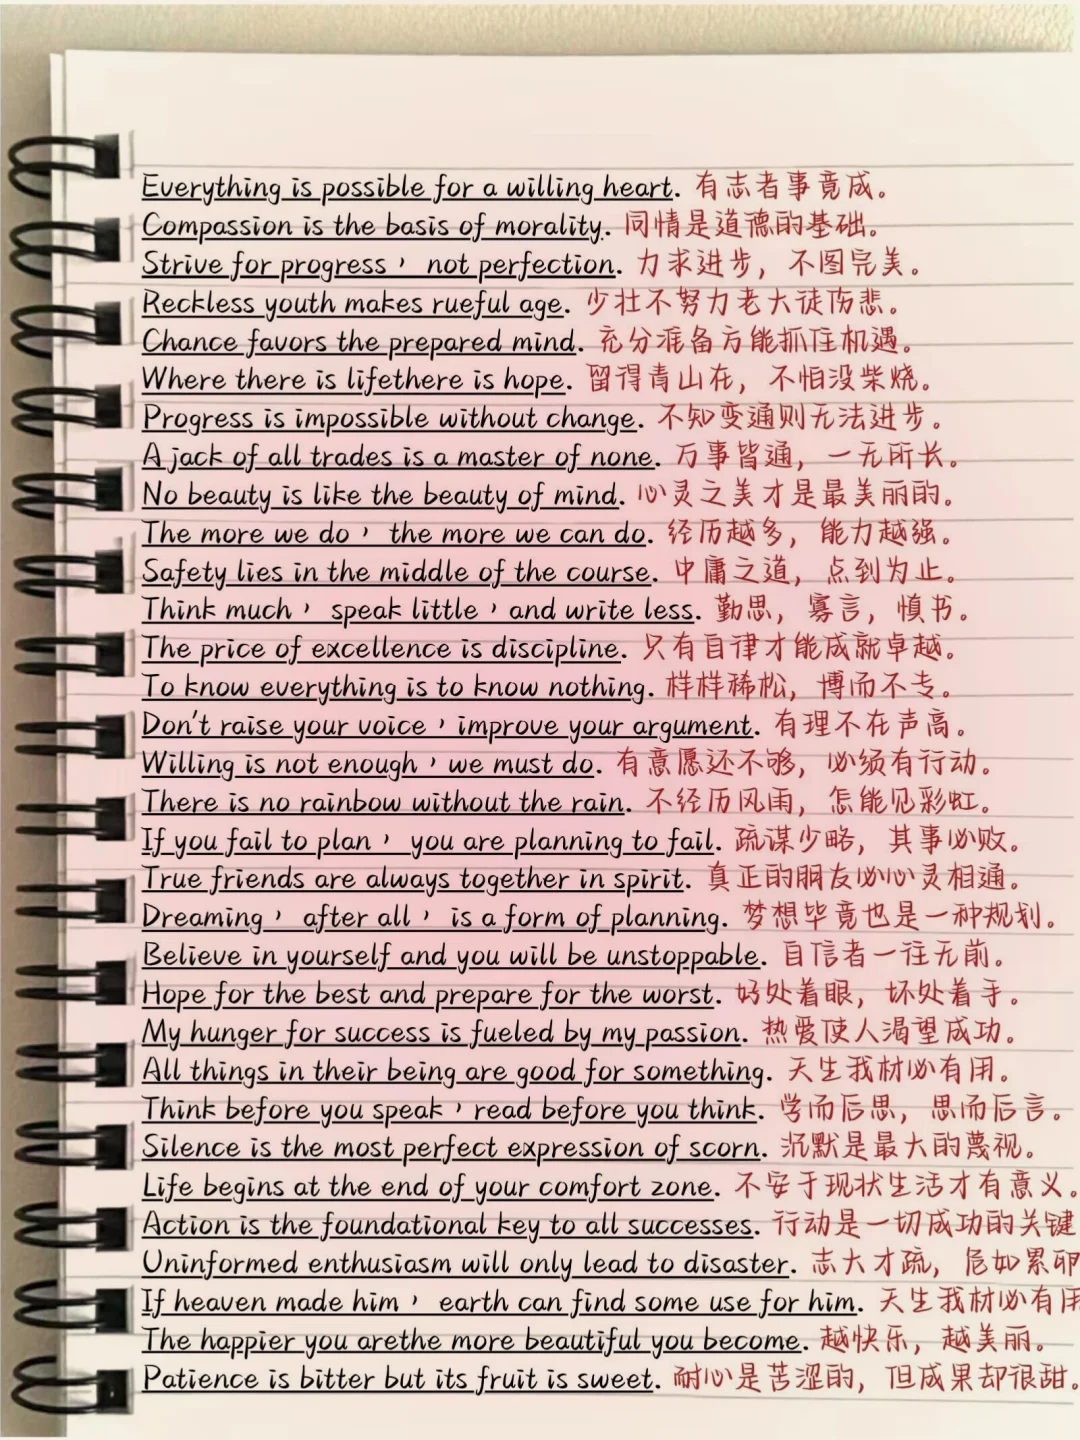 Everything is possible for a willing heart. 有志者事竟成。
Compassion is the basis of morality. 同情是道德的基础。
Strive for progress， not perfection. 力求进步，不图完美。
Reckless youth makes rueful age. 少壮不努力老大徒伤悲。
Chance favors the prepared mind. 充分准备方能抓住机遇。
Where there is lifethere is hope. 留得青山在，不怕没柴烧。
Progress is impossible without change. 不知变通则无法进步。
A jack of all trades is a master of none. 万事皆通，一无所长。
No beauty is like the beauty of mind. 心灵之美才是最美丽的。
The more we do， the more we can do. 经历越多，能力越强。
Safety lies in the middle of the course. 中庸之道，点到为止。
Think much， speak little，and write less. 勤思，寡言，慎书。
The price of excellence is discipline. 只有自律才能成就卓越。
To know everything is to know nothing. 样样稀松，博而不专。
Don't raise your voice，improve your argument. 有理不在声高。
Willing is not enough，we must do. 有意愿还不够，必须有行动。
There is no rainbow without the rain. 不经历风雨，怎能见彩虹。
If you fail to plan， you are planning to fail. 疏谋少略，其事必败。
True friends are always together in spirit. 真正的朋友必心灵相通。
Dreaming， after all， is a form of planning. 梦想毕竟也是一种规划。
Believe in yourself and you will be unstoppable. 自信者一往无前。
Hope for the best and prepare for the worst. 好处着眼，坏处着手。
My hunger for success is fueled by my passion. 热爱使人渴望成功。
All things in their being are good for something. 天生我材必有用。
Think before you speak，read before you think. 学而后思，思而后言。
Silence is the most perfect expression of scorn. 沉默是最大的蔑视。
Life begins at the end of your comfort zone. 不安于现状生活才有意义。
Action is the foundational key to all successes. 行动是一切成功的关键
Uninformed enthusiasm will only lead to disaster. 志大才疏，危如累卵
If heaven made him， earth can find some use for him. 天生我材必有用
The happier you arethe more beautiful you become. 越快乐，越美丽。
Patience is bitter but its fruit is sweet. 耐心是苦涩的，但成果却很甜。